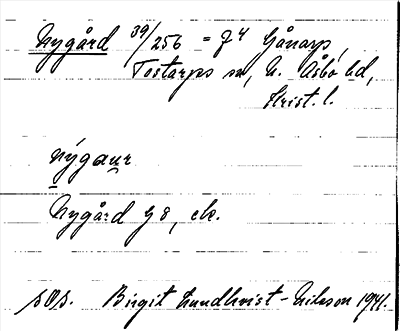 Nygård 39/256 = J4 Gånarp,
Tostarps sn, N. Åsbo hd,
Krist. l.
nýgaur
Nygård G 8, ek.
sOs. Birgit Lundkvist-Nilsson 1941.